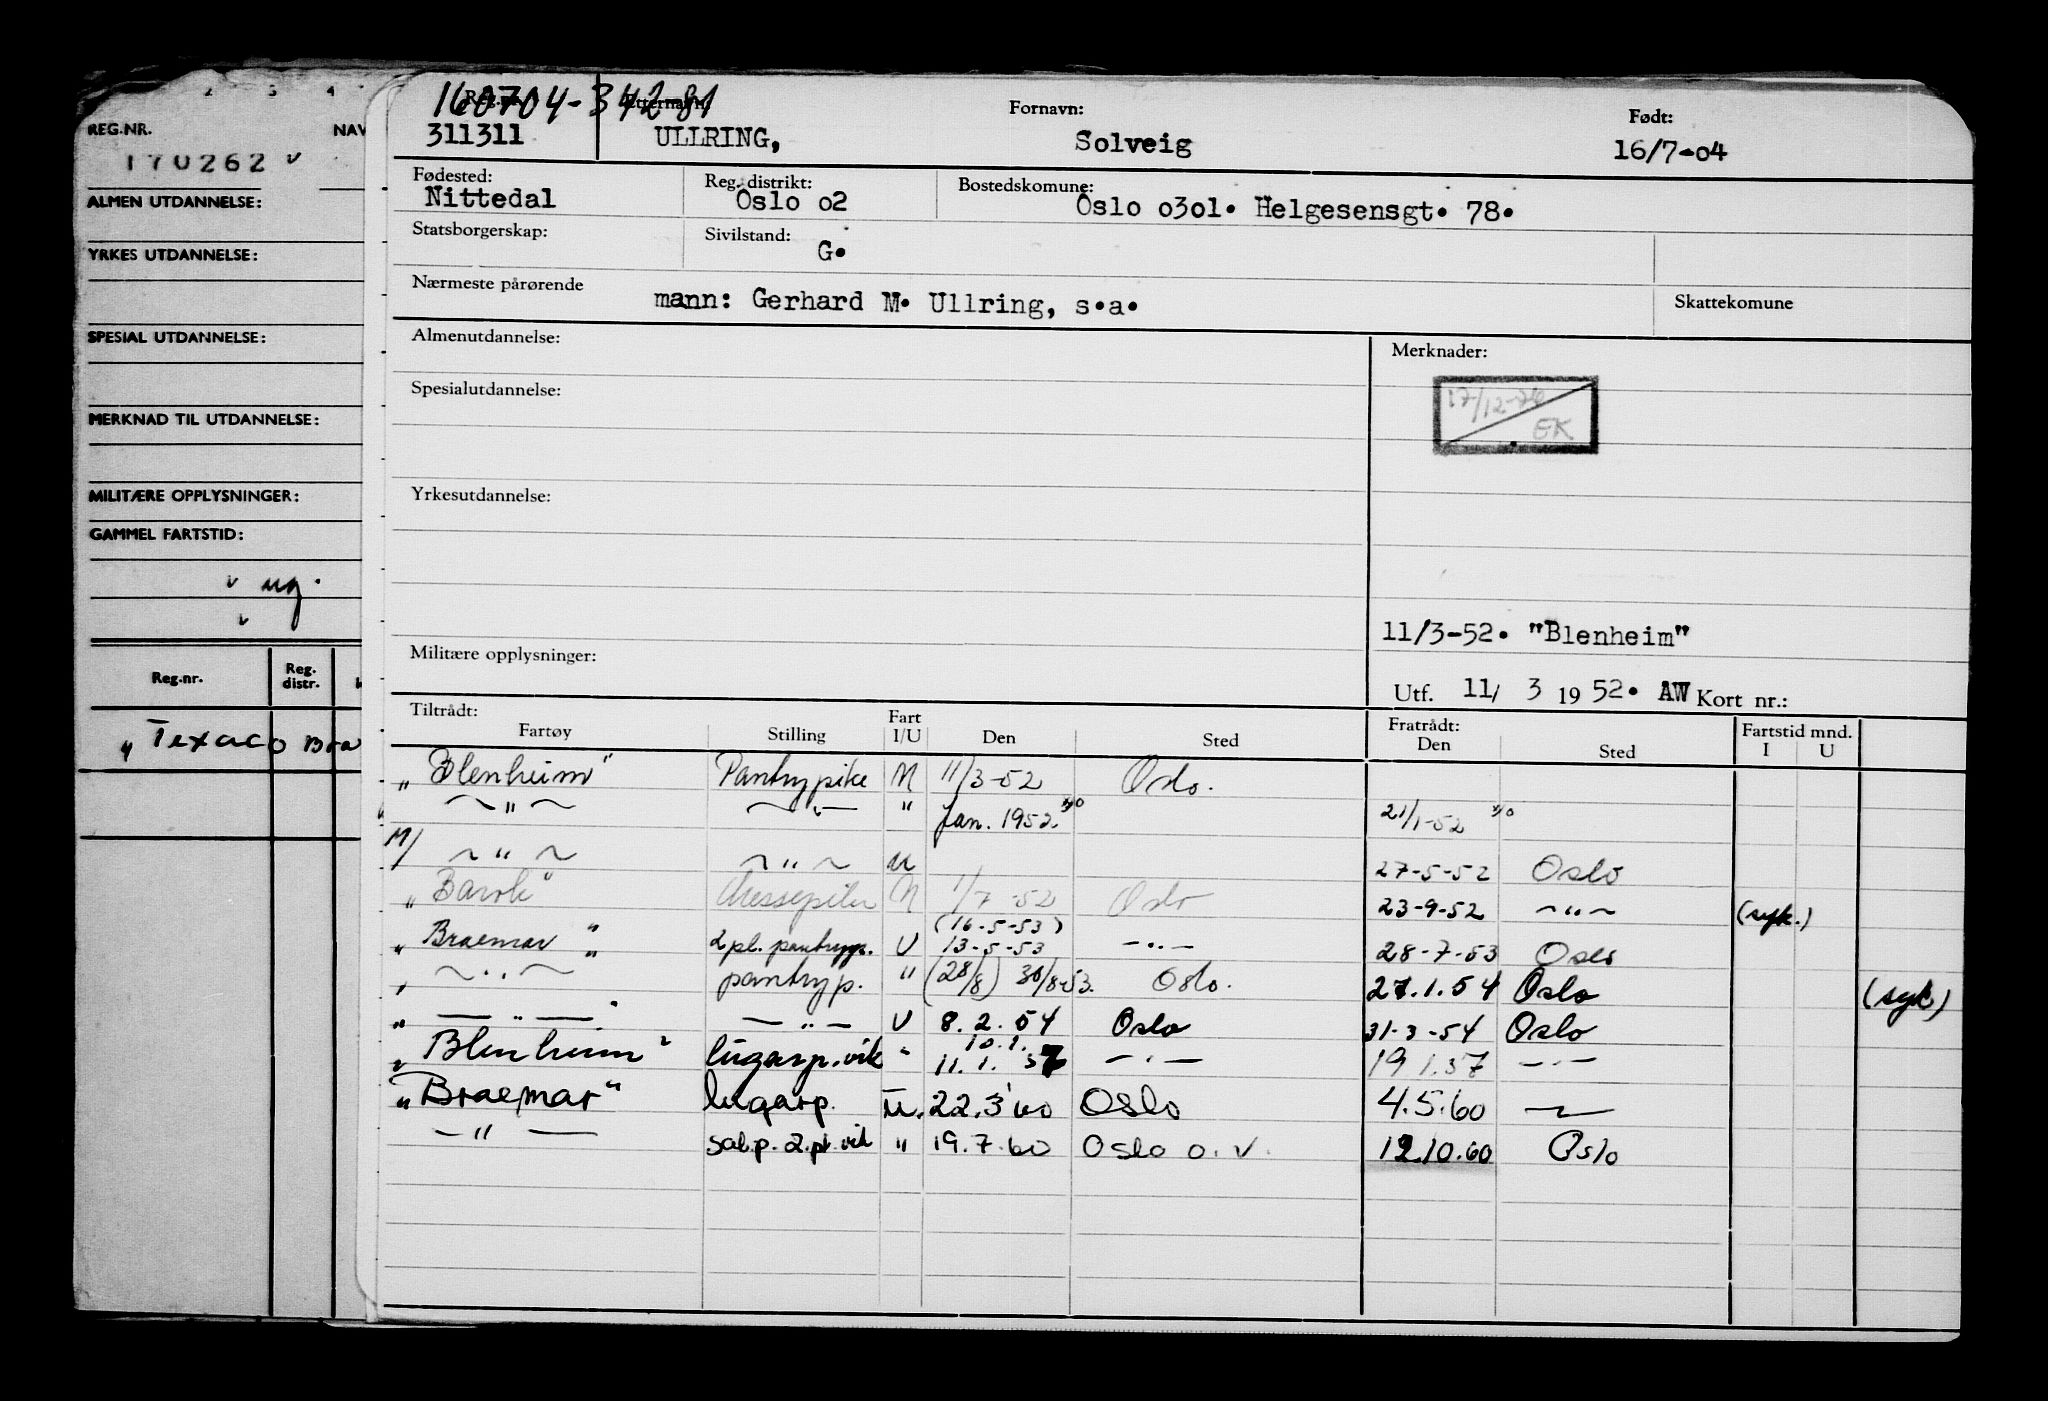 2 3 4
REG.NR. NAV
170262 v
ALMEN UTDANNELSE:
YRKES UTDANNELSE:
SPESIAL UTDANNELSE:
MERKNAD TIL UTDANNELSE:
MILITÆRE OPPLYSNINGER:
GAMMEL FARTSTID:
v ug.
v
Reg.nr. Reg. distr.
"Texaco Bra
160704-342-81
Reg.nr. Etternavn: Fornavn: Født:
311311 ULLRING, Solveig 16/7-04
Fødested: Reg. distrikt: Bostedskomune:
Nittedal Oslo o2 Oslo o3o1. Helgesensgt. 78.
Statsborgerskap: Sivilstand:
G.
Nærmeste pårørende mann: Gerhard M. Ullring, s.a. Skattekomune
Almenutdannelse: Merknader:
17/12-76
EK
Spesialutdannelse:
Yrkesutdannelse:
11/3-52. "Blenheim"
Militære opplysninger:
Utf. 11/ 3 19 52. AW Kort nr.:
Tiltrådt: Fart Fratrådt: Fartstid mnd.
Fartøy Stilling I/U Den Sted Den Sted I U
"Blenheim" Pantrypike N 11/3-52 Oslo.
~ " ~ ~ " — " Jan. 1952 21/1-52
M/ ~ " ~ ~ " ~ u 27-5-52 Oslo
"Barok" N 1/7-52 Oslo 23-9-52 ~ " ~ (syk.)
(16-5-53)
"Braemar" 2 pl. pantryp. U 13-5-53 — " — 28-7-53 Oslo
" ~ " ~ pantryp. " (28/8) 30/8-53. Oslo. 27.1.54 Oslo (syk)
" — " — — " — U 8.2.54 Oslo 31-3-54 Oslo
10.1.
"Blenheim" lugarp.vik " 11.1.57 — " — 19.1.57 — " —
"Braemar" lugarp. U. 22.3.60 Oslo 4.5.60 —
— " — sal.p. 2.pl. vik " 19.7.60 Oslo o. v. 12.10.60 Oslo